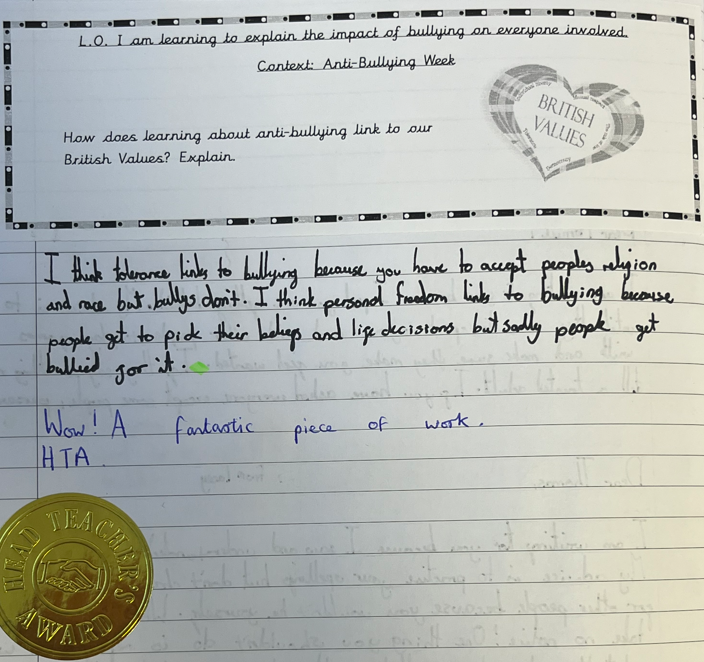 L.O. I am learning to explain the impact of bullying on everyone involved.
Context: Anti-Bullying Week
BRITISH
VALUES
Democracy
How does learning about anti-bullying link to our
British Values? Explain.
I think tolerance links to bullying because you have to accept peoples religion
and race but bullys don't. I think personal freedom links to bullying because
people get to pick their beliefs and life decisions but sadly people get
bullied for it.
Wow! A fantastic piece of work.
HTA
HEAD TEACHER'S
AWARD